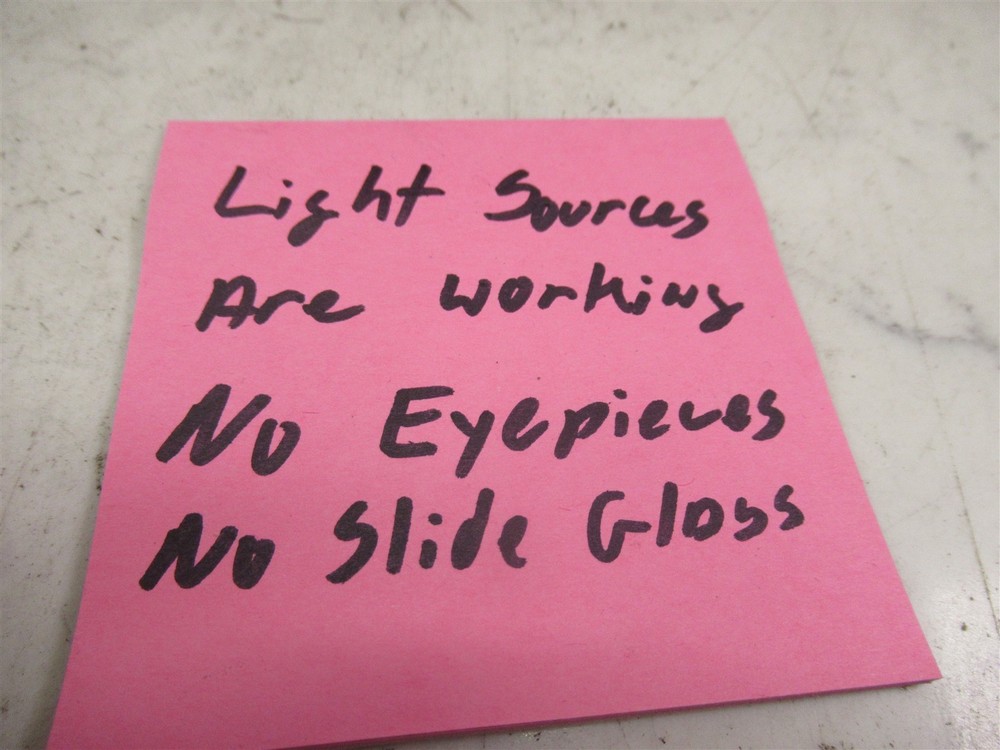 Light Sources
Are working
No Eyepieces
No Slide Glass